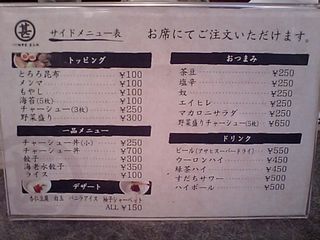 甚
サイドメニュー表
お席にてご注文いただけます。
トッピング
とろろ昆布 ¥100
メンマ ¥100
もやし ¥100
海苔(5枚) ¥100
チャーシュー(3枚) ¥250
野菜盛り ¥300
一品メニュー
チャーシュー丼(小) ¥250
チャーシュー丼 ¥700
餃子 ¥300
海老水餃子 ¥350
ライス ¥100
デザート
杏仁豆腐 白玉 バニラアイス 柚子シャーベット
ALL ¥150
おつまみ
茶豆 ¥250
塩辛 ¥250
奴 ¥250
エイヒレ ¥250
マカロニサラダ ¥250
野菜盛りチャーシュー(5枚) ¥650
ドリンク
ビール(アサヒスーパードライ) ¥550
ウーロンハイ ¥450
緑茶ハイ ¥450
すだちサワー ¥500
ハイボール ¥500